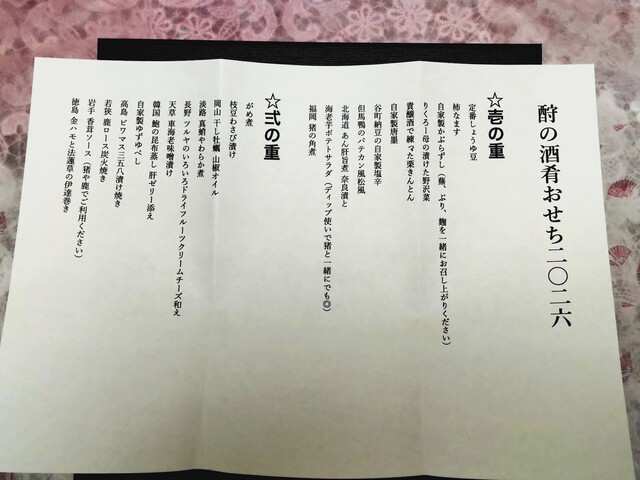 酎の酒肴おせち二〇二六
☆壱の重
定番しょうゆ豆
柿なます
自家製かぶらずし(蕪、ぶり、麹を一緒にお召し上がりください)
りくろー母の漬けた野沢菜
貴醸酒で練った栗きんとん
自家製唐墨
谷町納豆の自家製塩辛
但馬鴨のパテカン風松風
北海道 あん肝旨煮 奈良漬と
海老芋ポテトサラダ(ディップ使いで猪と一緒にでも◎)
福岡 猪の角煮
☆弐の重
がめ煮
枝豆わさび漬け
岡山 干し牡蠣 山椒オイル
淡路 真蛸やわらか煮
長野 ツルヤのいろいろドライフルーツクリームチーズ和え
天草 車海老味噌漬け
韓国 鮑の昆布蒸し 肝ゼリー添え
自家製ゆずゆべし
高島 ビワマス三五八漬け焼き
若狭 鹿ロース炭火焼き
岩手 香茸ソース(猪や鹿でご利用ください)
徳島 金ハモと法蓮草の伊達巻き